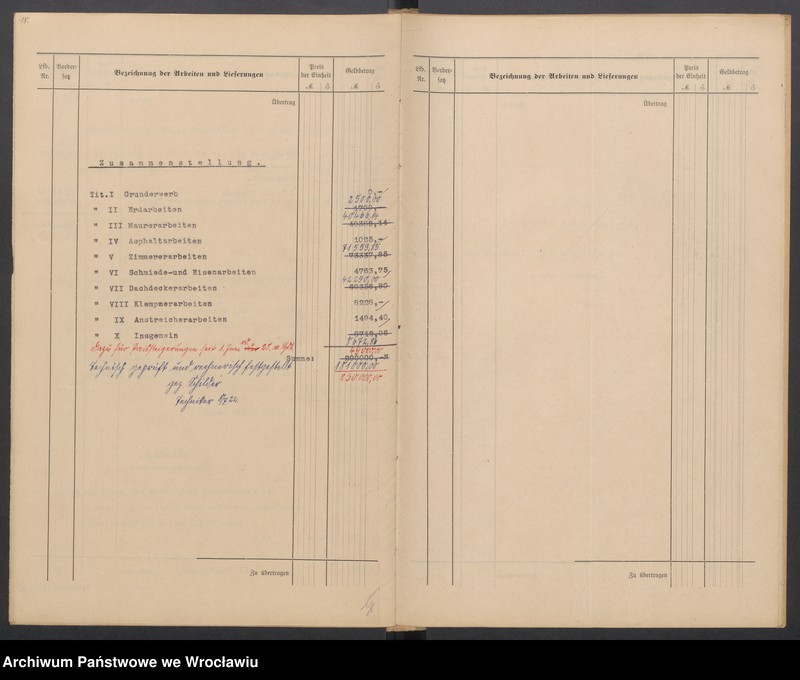 Lfd. Nr.
Vordersatz
Bezeichnung der Arbeiten und Lieferungen
Preis der Einheit
Geldbetrag
Übertrag
Zusammenstellung.
Tit.I Grunderwerb
" II Erdarbeiten 2500,00
" III Maurerarbeiten
" IV Asphaltarbeiten 1025,-
" V Zimmererarbeiten 73337,85
" VI Schmiede-und Eisenarbeiten 4763,75
" VII Dachdeckerarbeiten
" VIII Klempnerarbeiten 8228,-
" IX Anstreicherarbeiten 1494,40
" X Insgemein
Dazu für Preissteigerungen seit 1. Juni
Summe:
technisch geprüft und rechnerisch festgestellt
181000,00
230000,00
gez Schilder
Techniker
Zu übertragen
Lfd. Nr.
Vordersatz
Bezeichnung der Arbeiten und Lieferungen
Preis der Einheit
Geldbetrag
Übertrag
Zu übertragen
Archiwum Państwowe we Wrocławiu